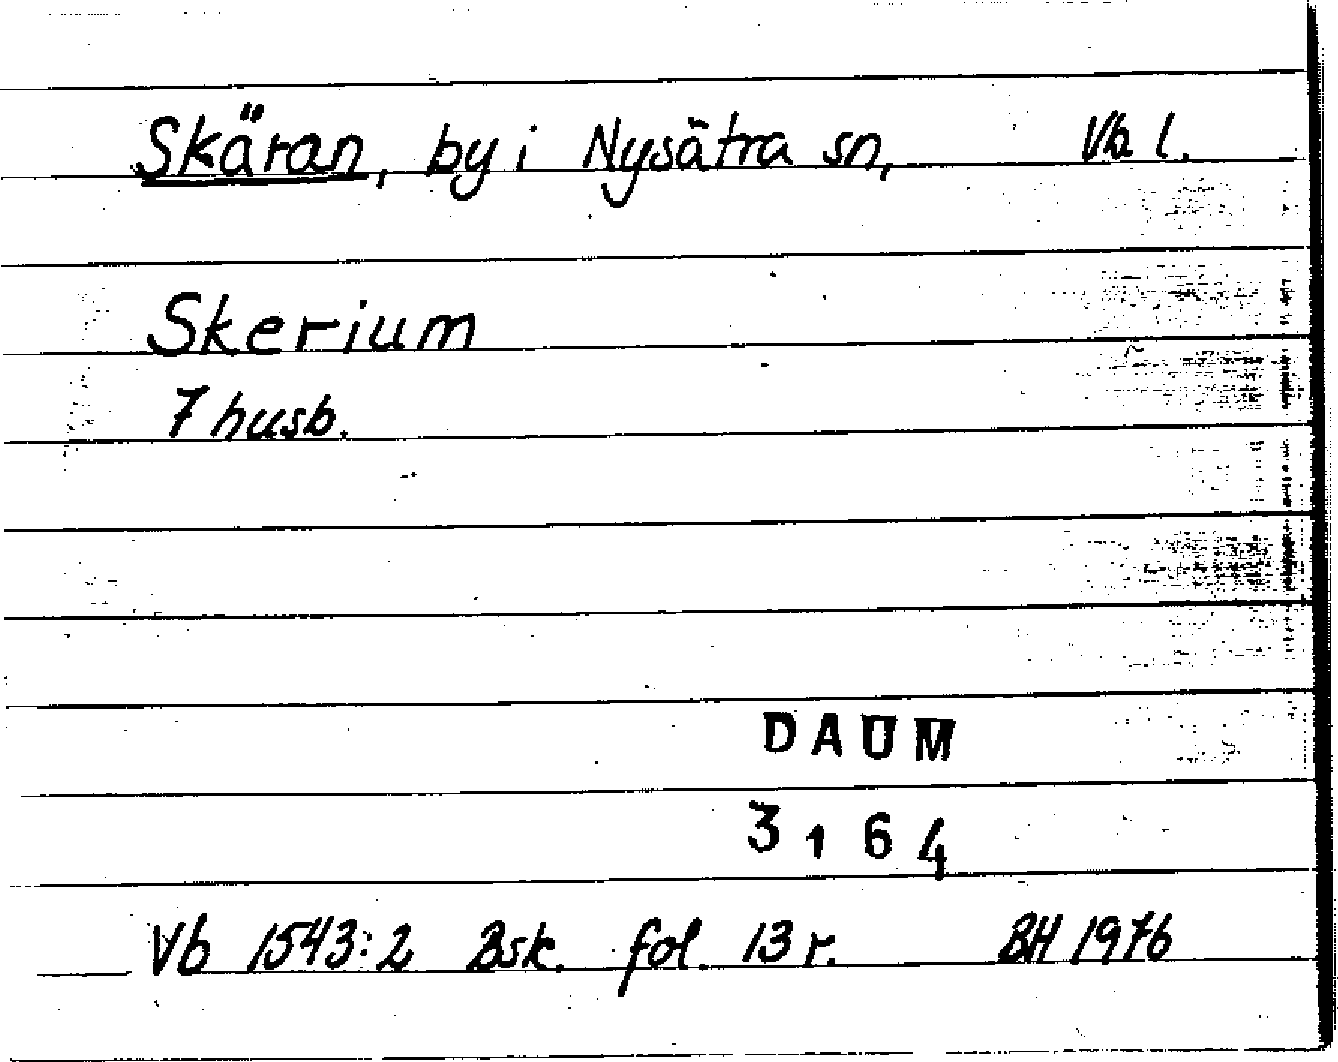 Skäran, by i Nysätra sn, Vb l.
Skerium
7 husb.
DAUM
3164
Vb 1543:2 Bsk. fol. 13 r. BH 1976